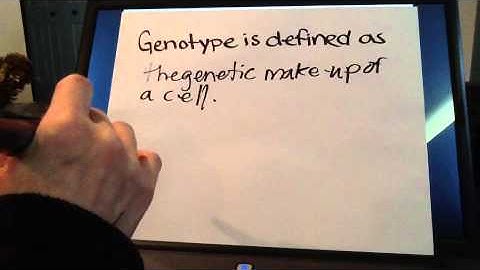 Genotype is defined as
the genetic make-up of
a cell.